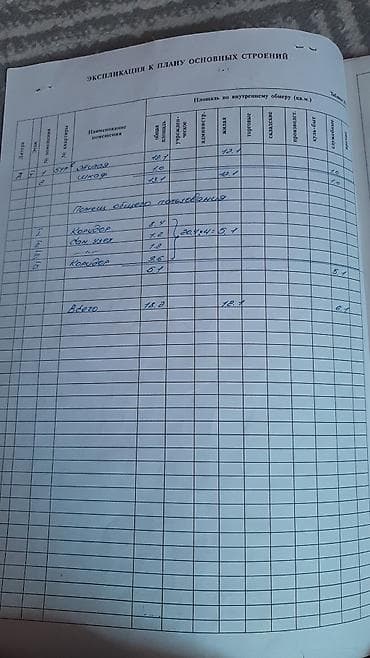 ЭКСПЛИКАЦИЯ К ПЛАНУ ОСНОВНЫХ СТРОЕНИЙ
Площадь по внутреннему обмеру (кв.м.)
Литера Этаж № помещения № квартиры Наименование помещения общая площадь учрежден-ческое администр. жилая торговые складские производст. культ-быт служебные прочие
1 жилая 12.1 12.1
2 шкаф 1.0 1.0
13.1 12.1 1.0
Помещ. общего пользования
Коридор 8.4
Сан. узел 7.2 20.4:4= 5.1
1.2
Коридор 3.6
5.1 5.1
Всего 18.2 12.1 6.1